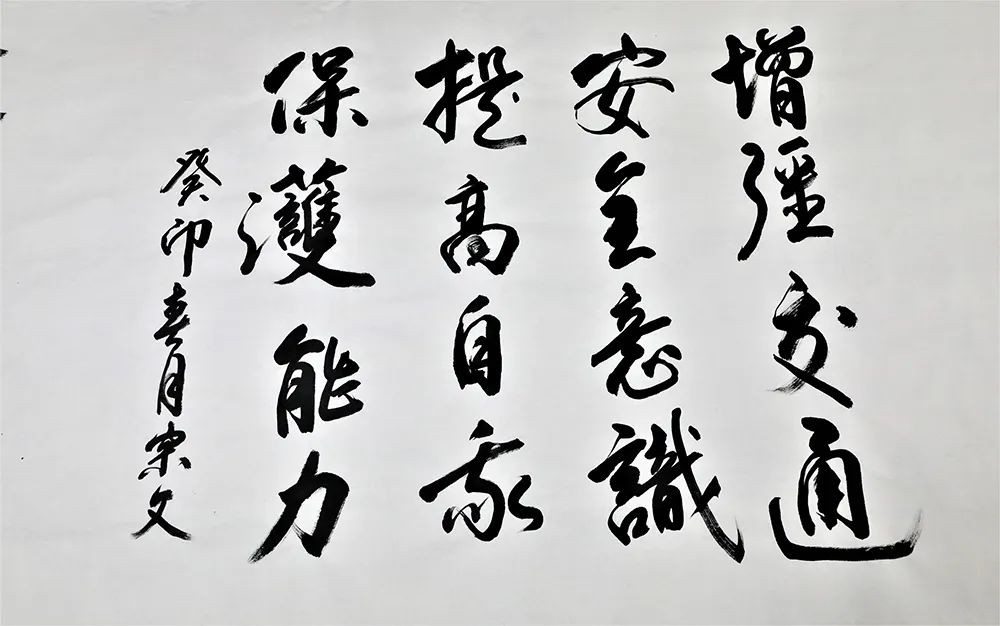 增强交通
安全意識
提高自我
保護能力
癸卯春月宗文